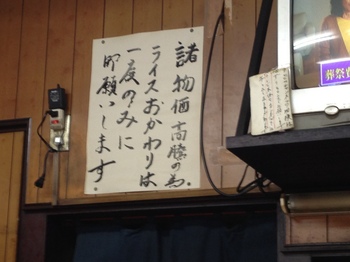 諸物価高騰の為
ライスおかわりは
一度のみに
御願いします
葬祭費